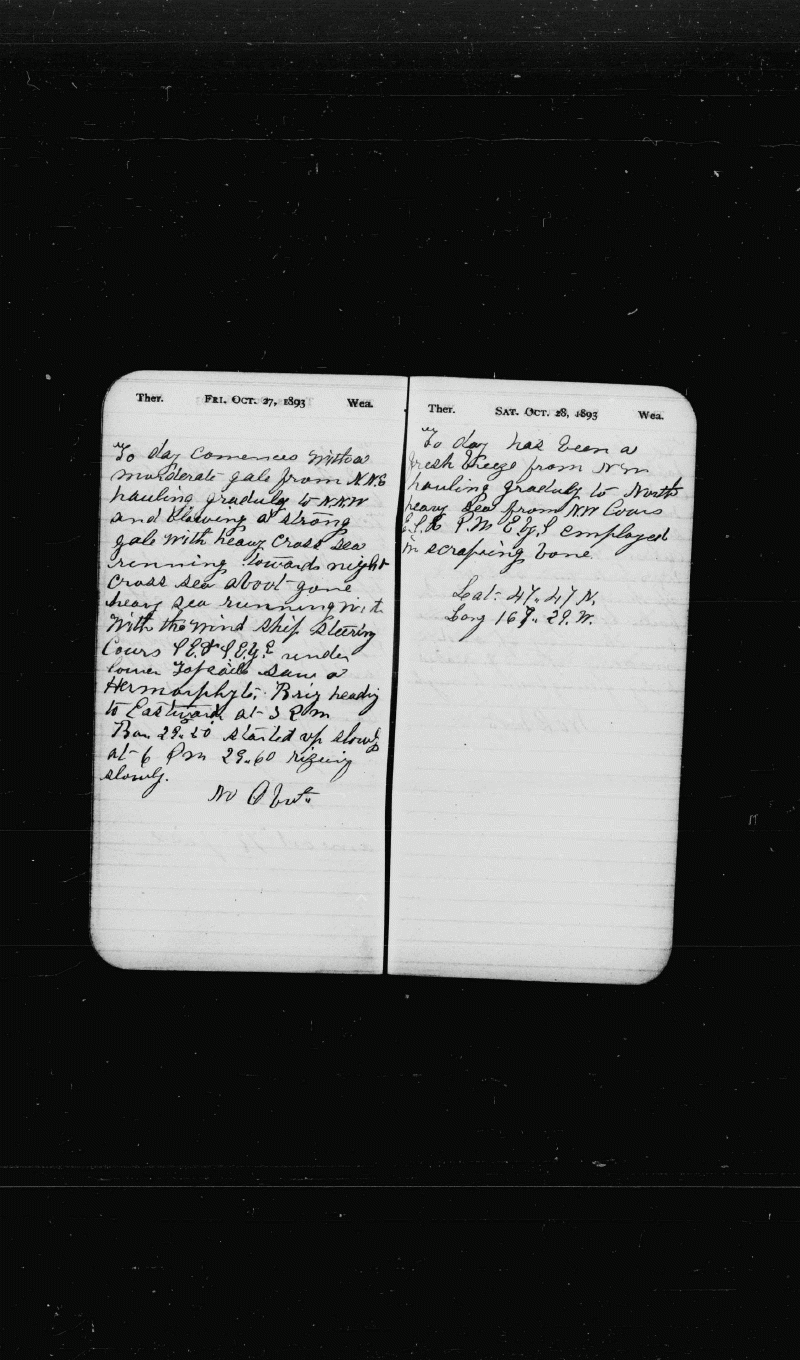 Ther. FRI. OCT. 27, 1893 Wea.
To day Comences with a
morderate gale from N.N.E
hauling graduly to N.N.W
and blowing a strong
gale with heavy cross sea
running. towards night
cross sea about gone
heavy sea running
With the wind ship Steering
Cours S.E. & S.E.y.E under
lower Topsails Saw a
Hermorphyte Brig heading
to Eastward at 3 P.m
Bar. 29.20 started up slowly
at 6 P m 29.60 rizeing
slowly.
No Obvt.
Ther. SAT. OCT. 28, 1893 Wea.
To day has been a
fresh breeze from
hauling graduly to North
heavy Sea from NW Cours
P.M. E.y.S employed
in scraping bone.
Lat. 47.. 47 N.
Long 29. W.